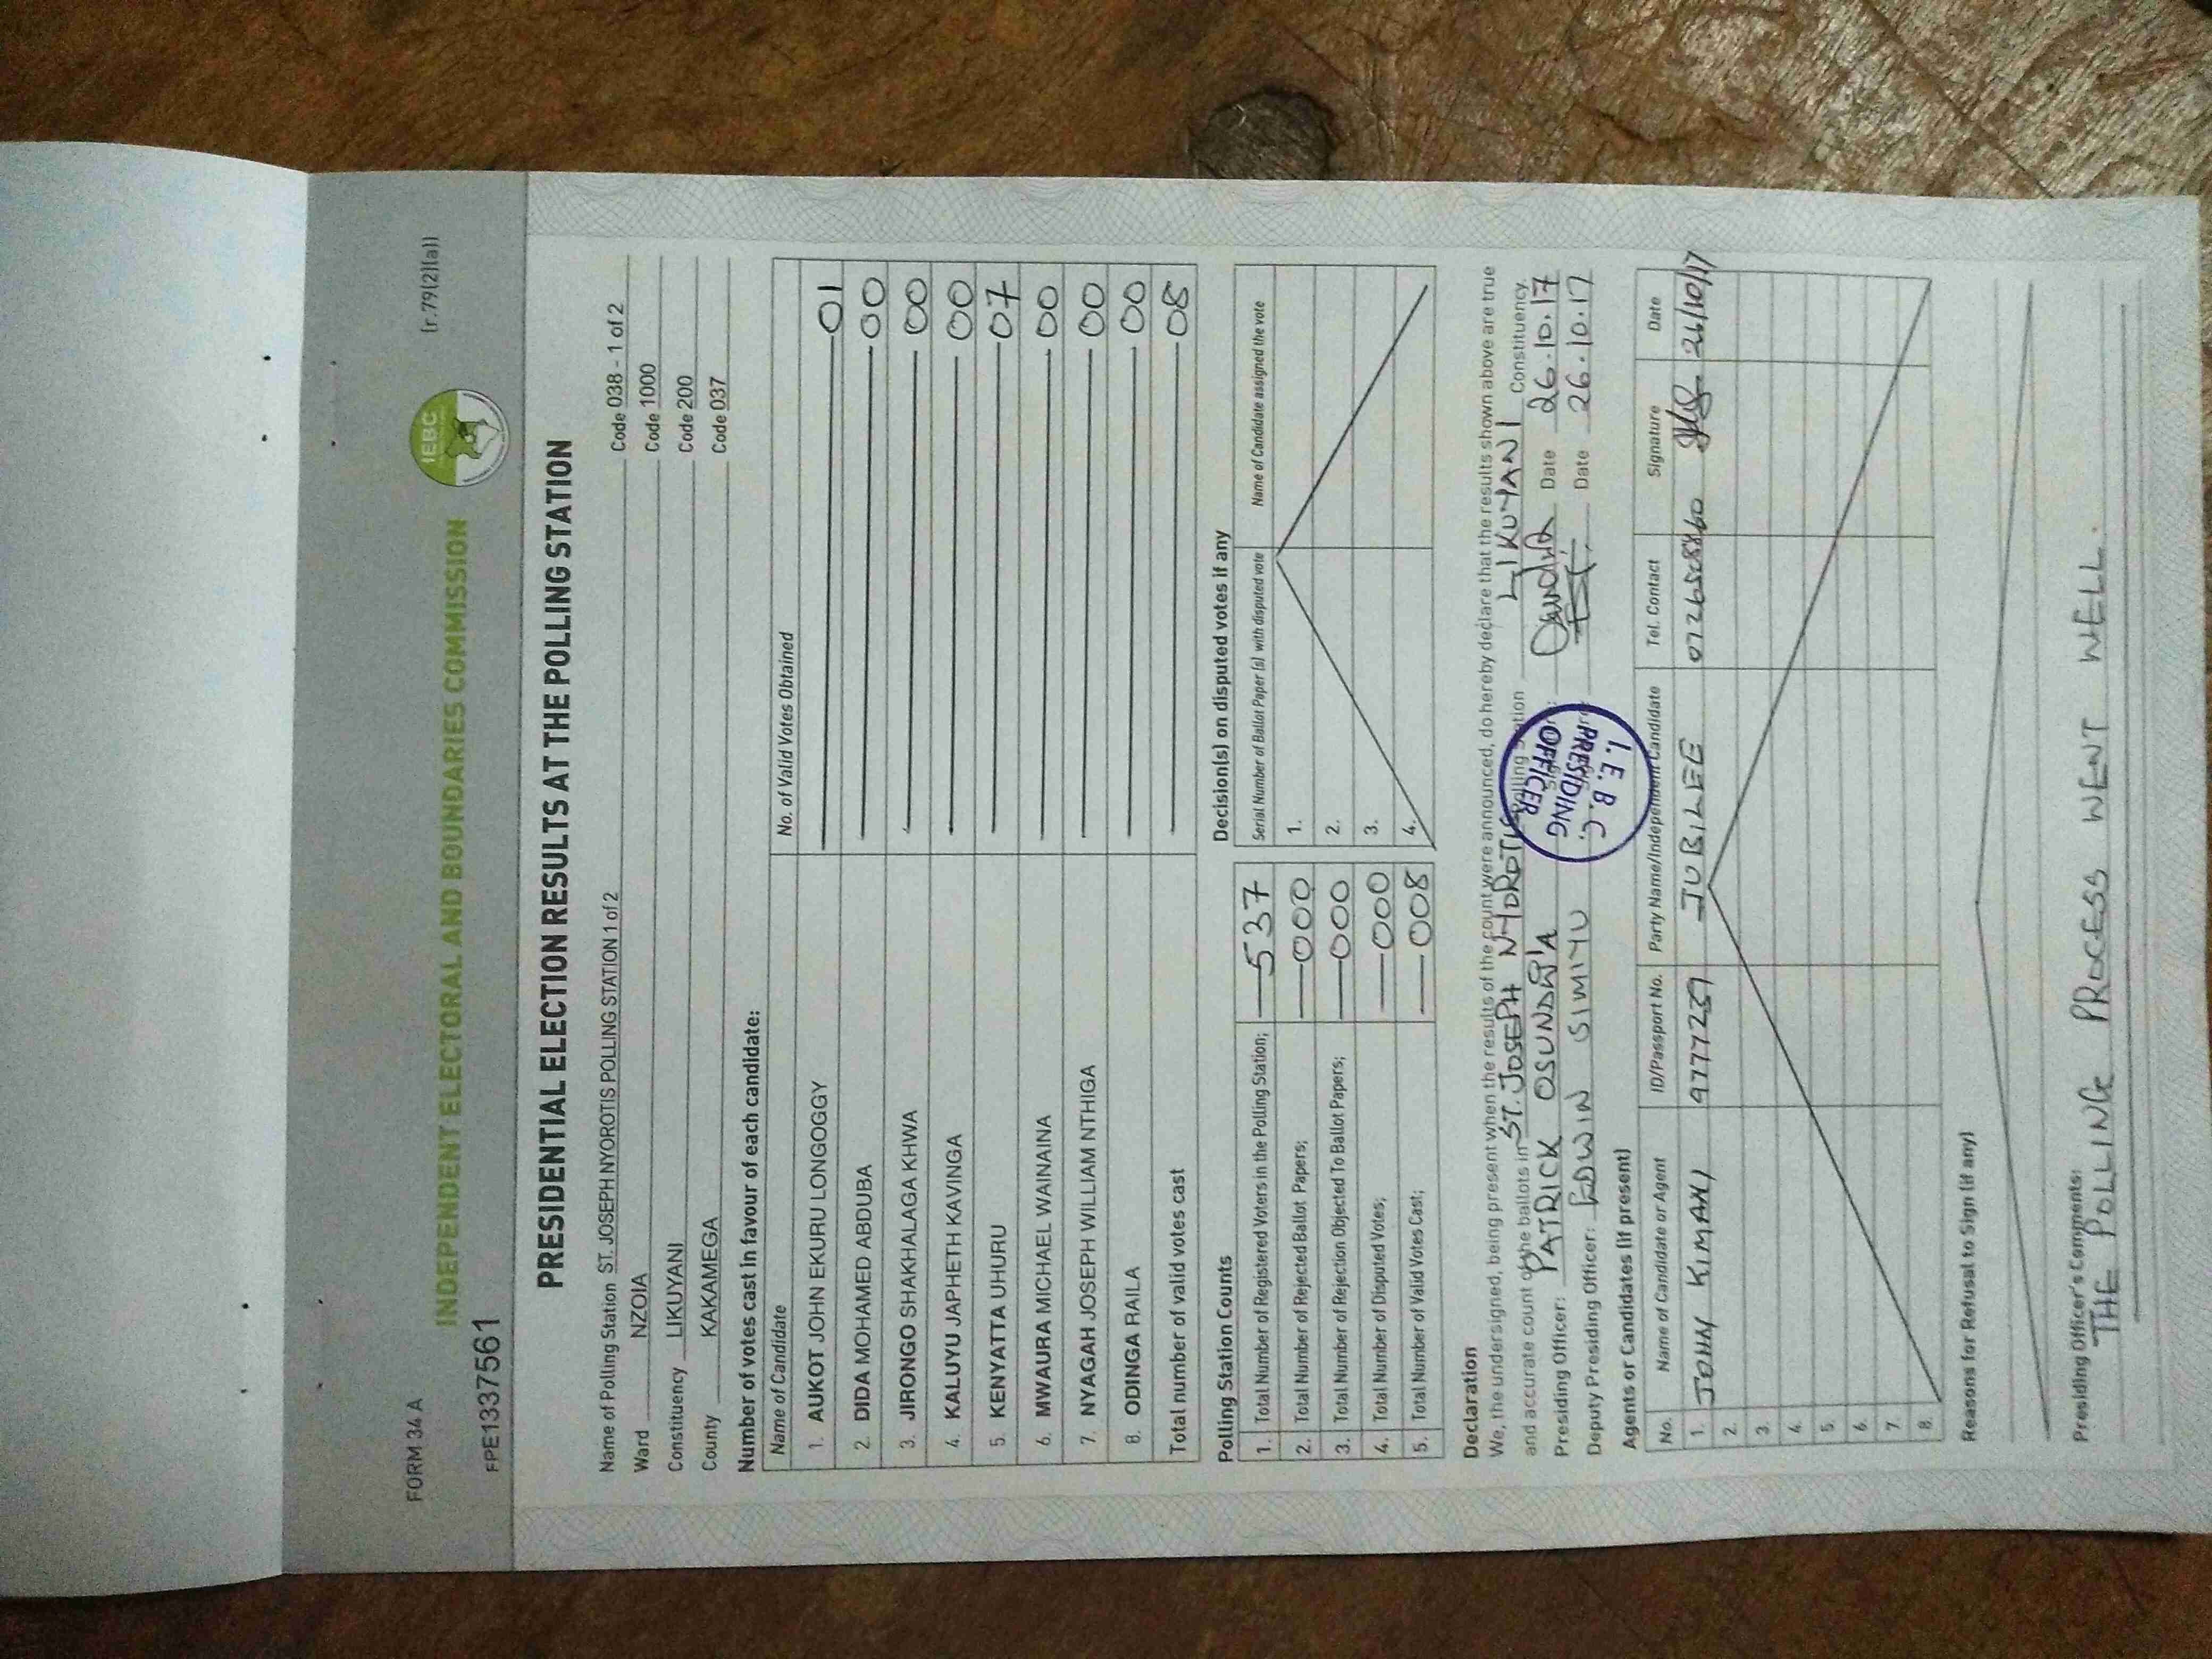 FORM 34 A
(r.79(2)(a))
FPE1337561
INDEPENDENT ELECTORAL AND BOUNDARIES COMMISSION
IEBC
PRESIDENTIAL ELECTION RESULTS AT THE POLLING STATION
Name of Polling Station ST. JOSEPH NYOROTIS POLLING STATION 1 of 2 Code 038 - 1 of 2
Ward NZOIA Code 1000
Constituency LIKUYANI Code 200
County KAKAMEGA Code 037
Number of votes cast in favour of each candidate:
Name of Candidate No. of Valid Votes Obtained
1. AUKOT JOHN EKURU LONGOGGY 01
2. DIDA MOHAMED ABDUBA 00
3. JIRONGO SHAKHALAGA KHWA 00
4. KALUYU JAPHETH KAVINGA 00
5. KENYATTA UHURU 07
6. MWAURA MICHAEL WAINAINA 00
7. NYAGAH JOSEPH WILLIAM NTHIGA 00
8. ODINGA RAILA 00
Total number of valid votes cast 08
Polling Station Counts
1. Total Number of Registered Voters in the Polling Station; 537
2. Total Number of Rejected Ballot Papers; 000
3. Total Number of Rejection Objected To Ballot Papers; 000
4. Total Number of Disputed Votes; 000
5. Total Number of Valid Votes Cast; 008
Decision(s) on disputed votes if any
Serial Number of Ballot Paper (s) with disputed vote Name of Candidate assigned the vote
1.
2.
3.
4.
Declaration
We, the undersigned, being present when the results of the count were announced, do hereby declare that the results shown above are true
and accurate count of the ballots in ST. JOSEPH NYOROTIS Polling Station LIKUYANI Constituency.
Presiding Officer: PATRICK OSUNDWA Date 26.10.17
Deputy Presiding Officer: EDWIN SIMIYU Date 26.10.17
I.E.B.C.
PRESIDING
OFFICER
Agents or Candidates (if present)
No. Name of Candidate or Agent ID/Passport No. Party Name/Independent Candidate Tel. Contact Signature Date
1. JOHN KIMANI 9777239 JUBILEE 0726508860 26/10/17
2.
3.
4.
5.
6.
7.
8.
Reasons for Refusal to Sign (if any)
Presiding Officer's Comments:
THE POLLING PROCESS WENT WELL.